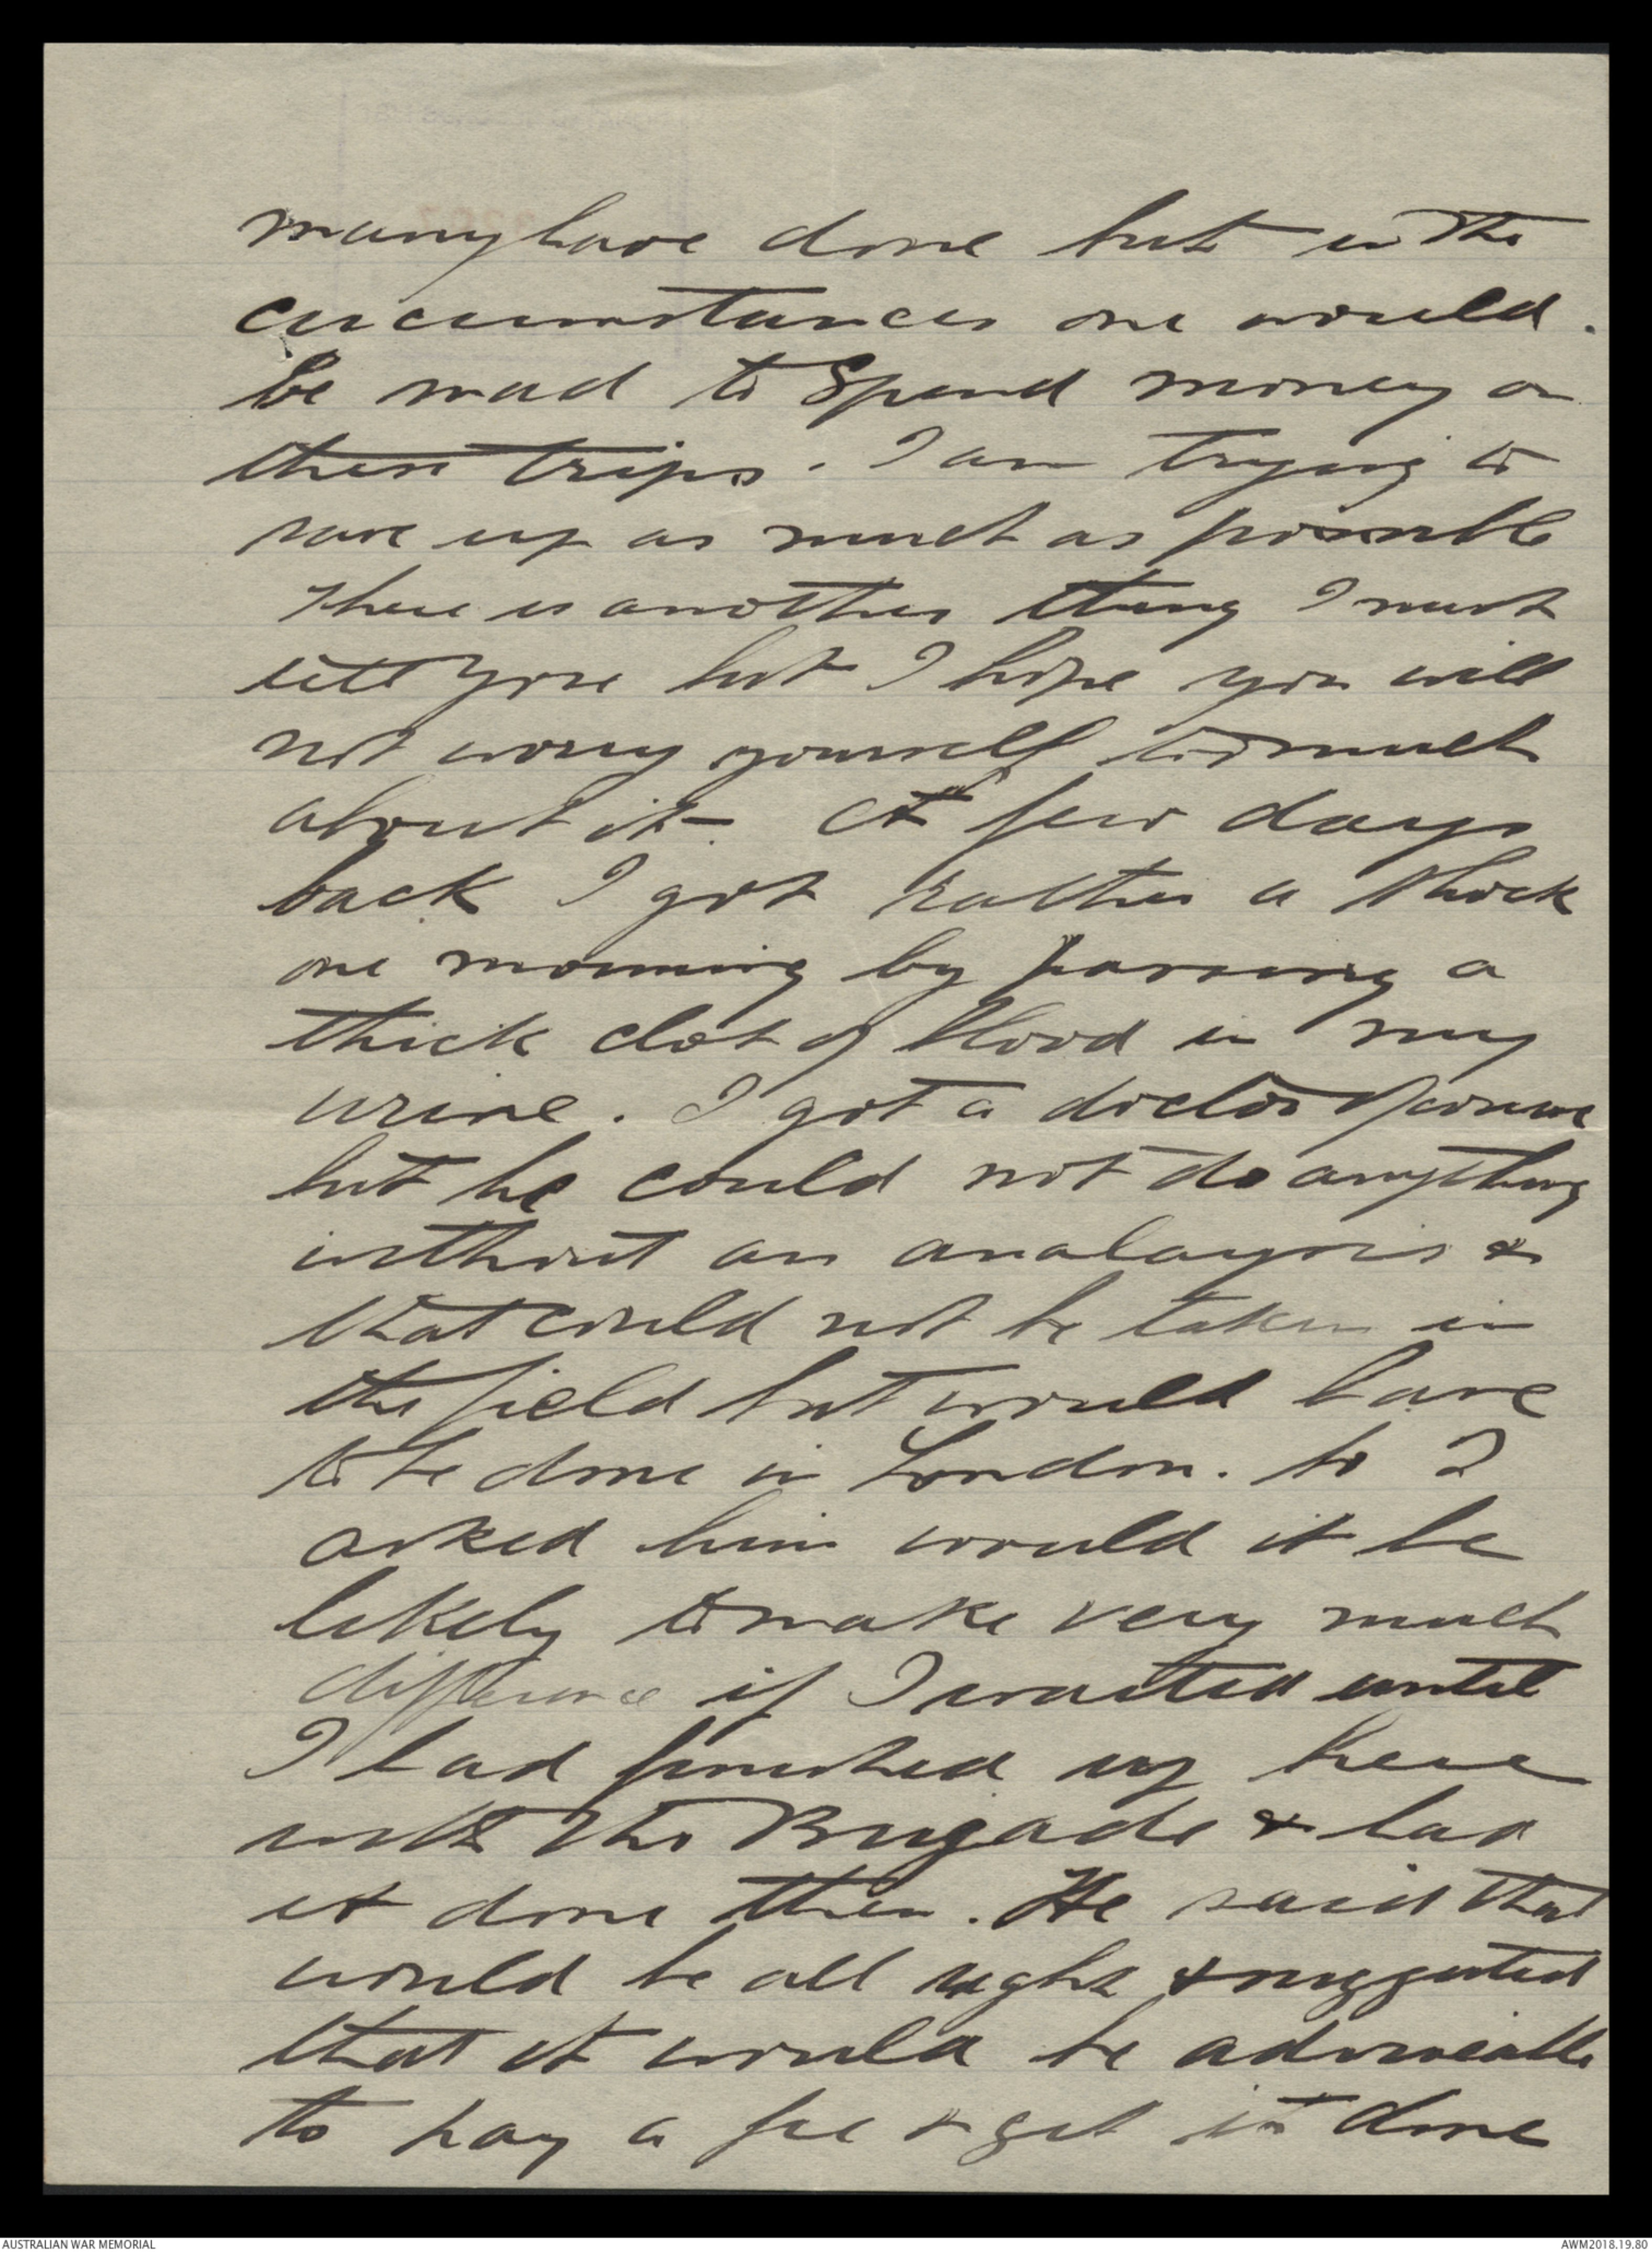 many have done but in the
circumstances one would.
be mad to spend money on
these trips. I am trying to
save up as much as possible
There is another thing I must
tell you but I hope you will
not worry yourself too much
about it - A few days
back I got rather a shock
one morning by passing a
thick clot of blood in my
urine. I got a doctor
but he could not do anything
without an analaysis &
that could not be taken in
the field but would have
to be done in London. So I
asked him would it be
likely to make very much
difference if I waited until
I had finished up here
with the Brigade & had
it done then. He said that
would be all right & suggested
that it would be adviseable
to pay a fee & get it done
AUSTRALIAN WAR MEMORIAL
AWM2018.19.80